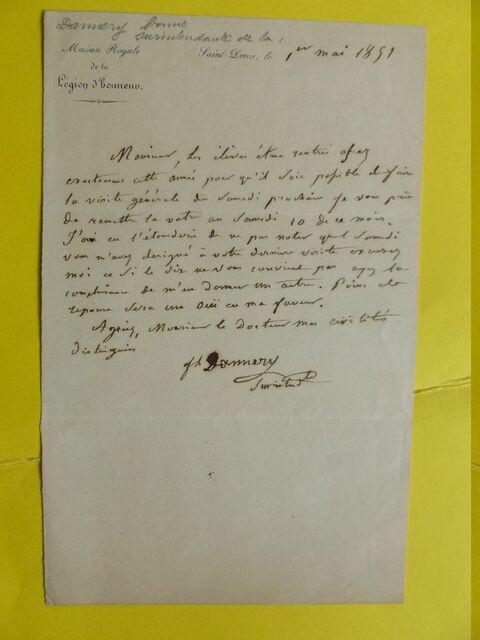 Dannery bonne
surintendante de la :
Maison Royale
de la
Légion d'honneur.
Saint-Denis, le 1er mai 1851
Monsieur, les élèves étant rentrées assez
exactement cette année pour qu'il soit possible de faire
la visite générale du samedi prochain je vous prie
de remettre la votre au samedi 10 de ce mois.
J'ai eu l'étourderie de ne pas noter quel samedi
vous m'avez designé à votre dernier visite excusez
moi et si le dix ne vous convient pas ayez la
complaisance de m'en donner un autre.
reponse sera un oui en ma faveur.
Agréez, Monsieur le Docteur mes civilités
distinguées
Dannery
Surintdte